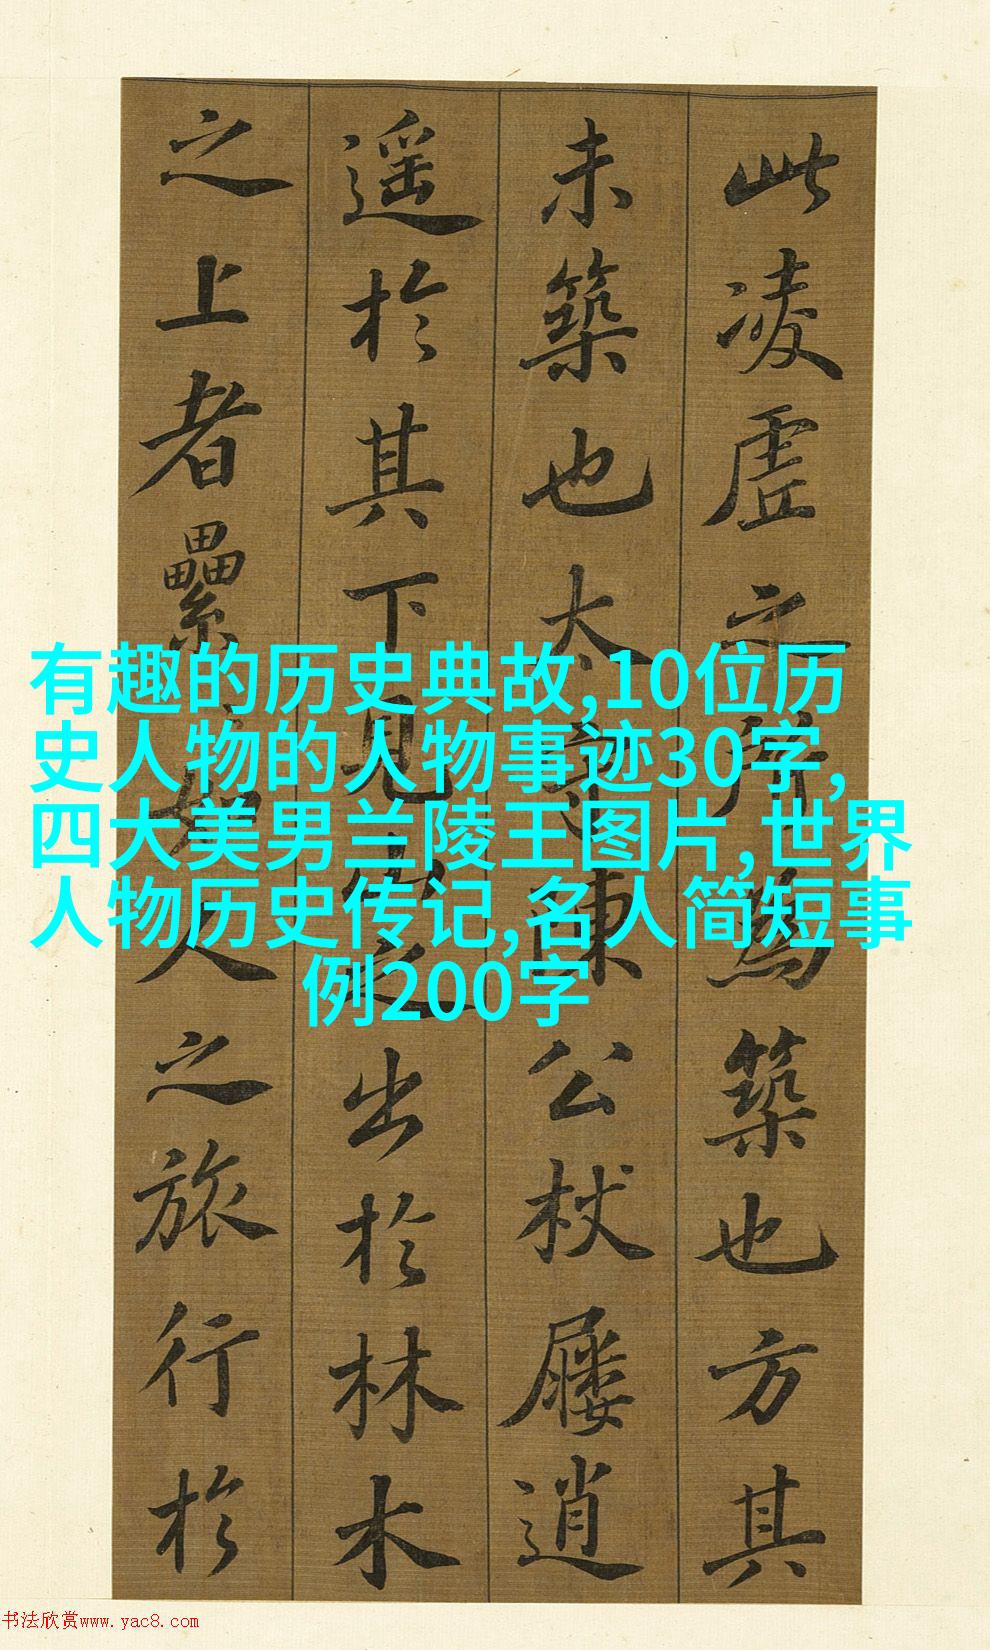 此凌虛之所為築也方其
未築也太守陳公杖屨逍
遥於其下見山之出於林木
之上者纍如人之旅行於
有趣的历史典故,10位历
史人物的人物事迹30字,
四大美男兰陵王图片,世界
人物历史传记,名人简短事
例200字
书法欣赏www.yac8.com